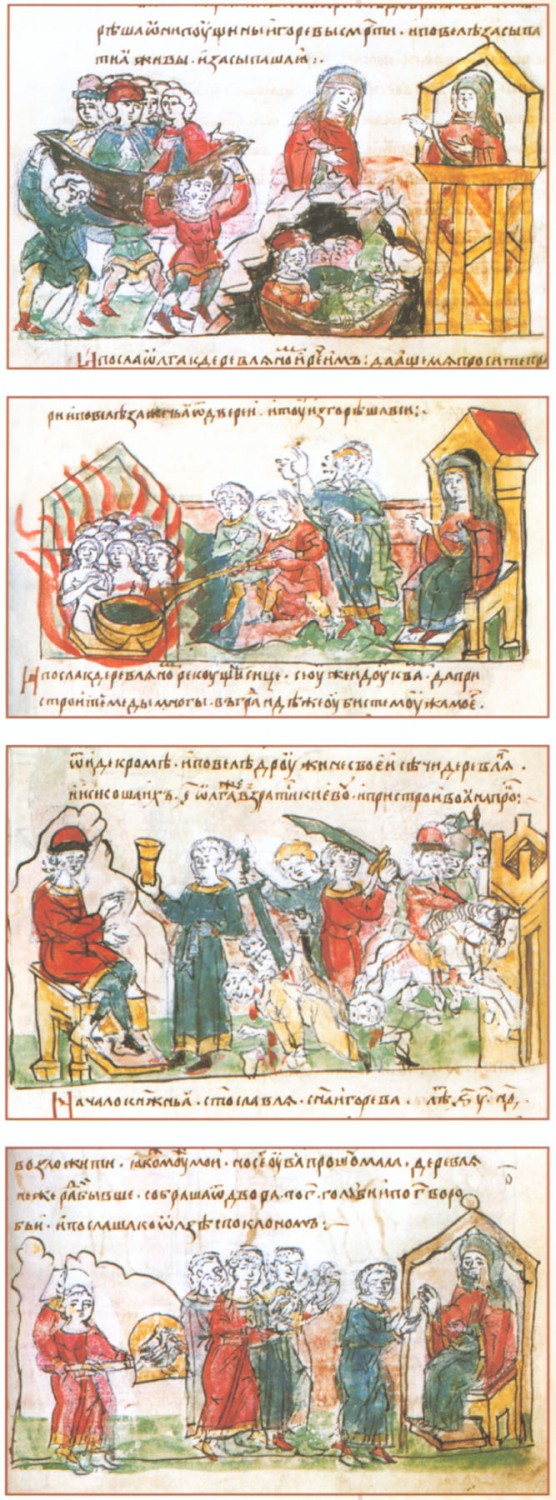 рѣша ѿни поущи ны игоревы смр҃ти · и повелѣ засыпа
ти ꙗ живы · и засыпаша ꙗ :·
И посла ѡлга к деревляно и реч҃ имъ : да аще мѧ просите пра
рии повелѣ зажечи ꙗ ѿ двереи · и тоу изгорѣша вси :·
И посла к деревляно рекоущи сице · се оуже идоу к ва · да при
строите меды многы · въ гра идѣже оубисте моужа мое ·
ѿиде кромѣ · и повелѣ дроужинѣ своеи сѣчи деревля ·
и исѣкоша ихъ · е҃ а ѡлга възратисѧ киевоу · и пристрои воꙗ на про :
Начало кнѧженьꙗ · ст҃ослава · сн҃а игорева · лѣ · ҂ѕ · у · нд ·
возложити · ꙗко моу мои · но сего оу ва прошю мала · деревля
не же ра бывше · собраша ѿ двора · по г҃ · голуби и по г҃ воро
бьи · и послаша к ѡлзѣ с поклономъ :·